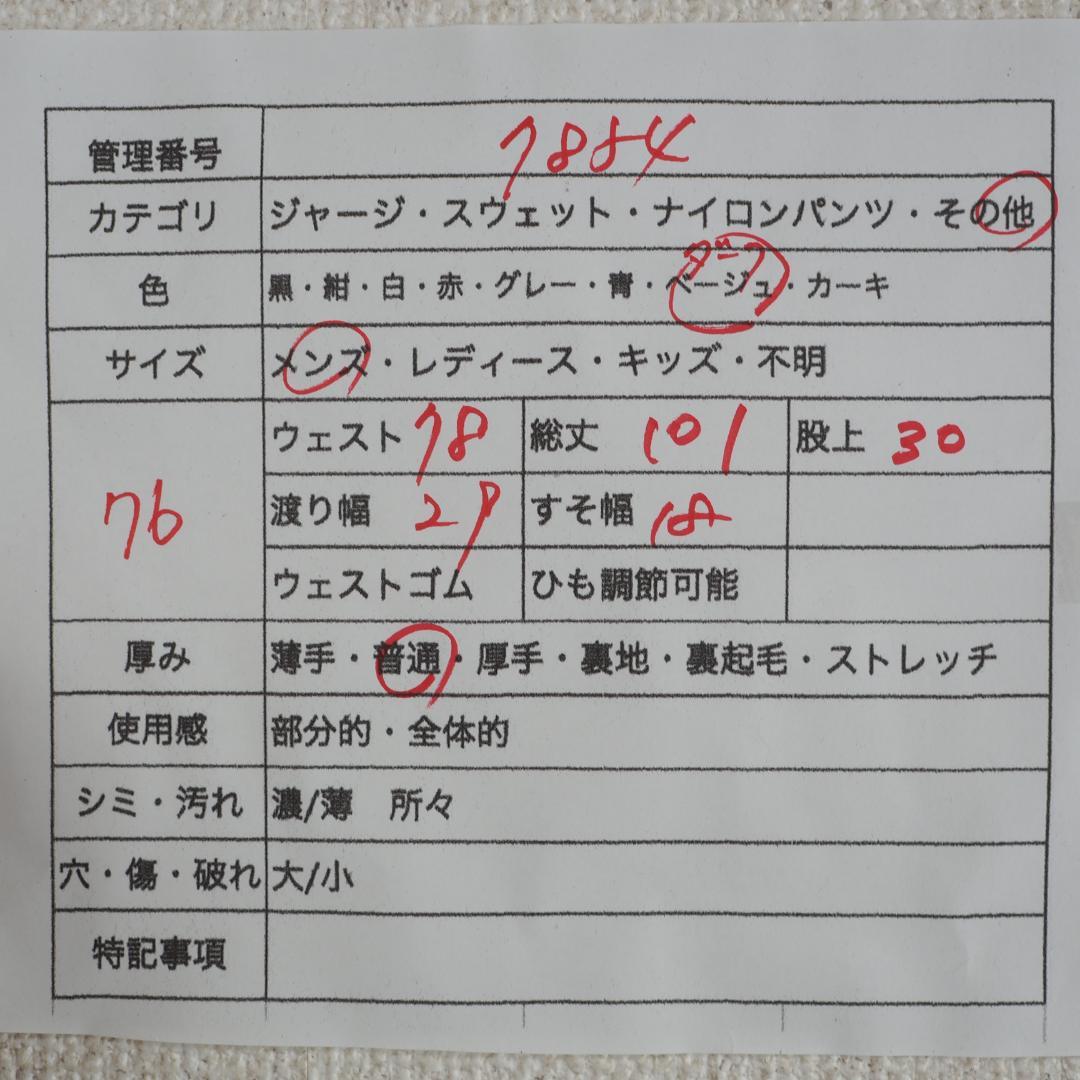 管理番号 7884
カテゴリ ジャージ・スウェット・ナイロンパンツ・その他
色 黒・紺・白・赤・グレー・青・ベージュ・カーキ
サイズ メンズ・レディース・キッズ・不明
76 ウェスト 78 総丈 101 股上 30
渡り幅 29 すそ幅 18
ウェストゴム ひも調節可能
厚み 薄手・普通・厚手・裏地・裏起毛・ストレッチ
使用感 部分的・全体的
シミ・汚れ 濃/薄 所々
穴・傷・破れ 大/小
特記事項